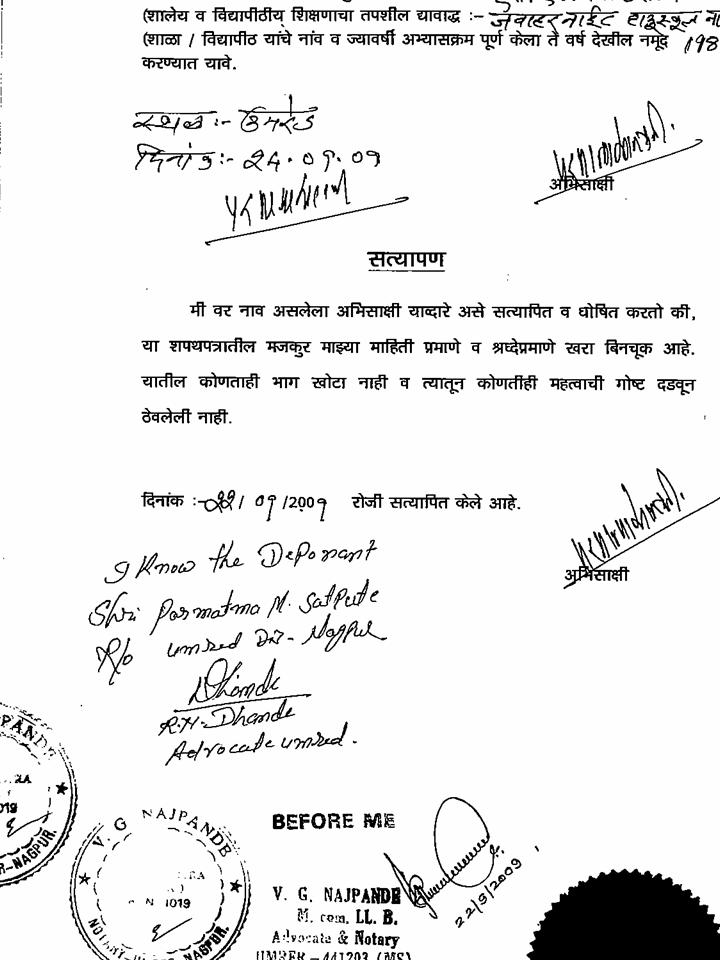 (शालेय व विद्यापीठीय शिक्षणाचा तपशील द्यावाद्य :- जवाहरनाईट हायस्कूल
(शाळा / विद्यापीठ यांचे नांव व ज्यावर्षी अभ्यासक्रम पूर्ण केला ते वर्ष देखील नमूद 198
करण्यात यावे.
स्थळ :- उमरेड
दिनांक :- 24.09.09
अभिसाक्षी
सत्यापण
मी वर नाव असलेला अभिसाक्षी याव्दारे असे सत्यापित व घोषित करतो की,
या शपथपत्रातील मजकुर माझ्या माहिती प्रमाणे व श्रध्देप्रमाणे खरा बिनचूक आहे.
यातील कोणताही भाग खोटा नाही व त्यातून कोणतीही महत्वाची गोष्ट दडवून
ठेवलेली नाही.
दिनांक :- 22/09/2009 रोजी सत्यापित केले आहे.
अभिसाक्षी
I Know the Deponant
Shri Parmatma M. Satpute
R/o umred Dis- Nagpur
Dhande
R.H. Dhande
Advocate umred.
V. G NAJPANDE
1019
NOTARY
NAGPUR.
BEFORE ME
V. G. NAJPANDE
M. com. LL. B.
Advocate & Notary
UMRER-441203 (MS)
22/9/2009